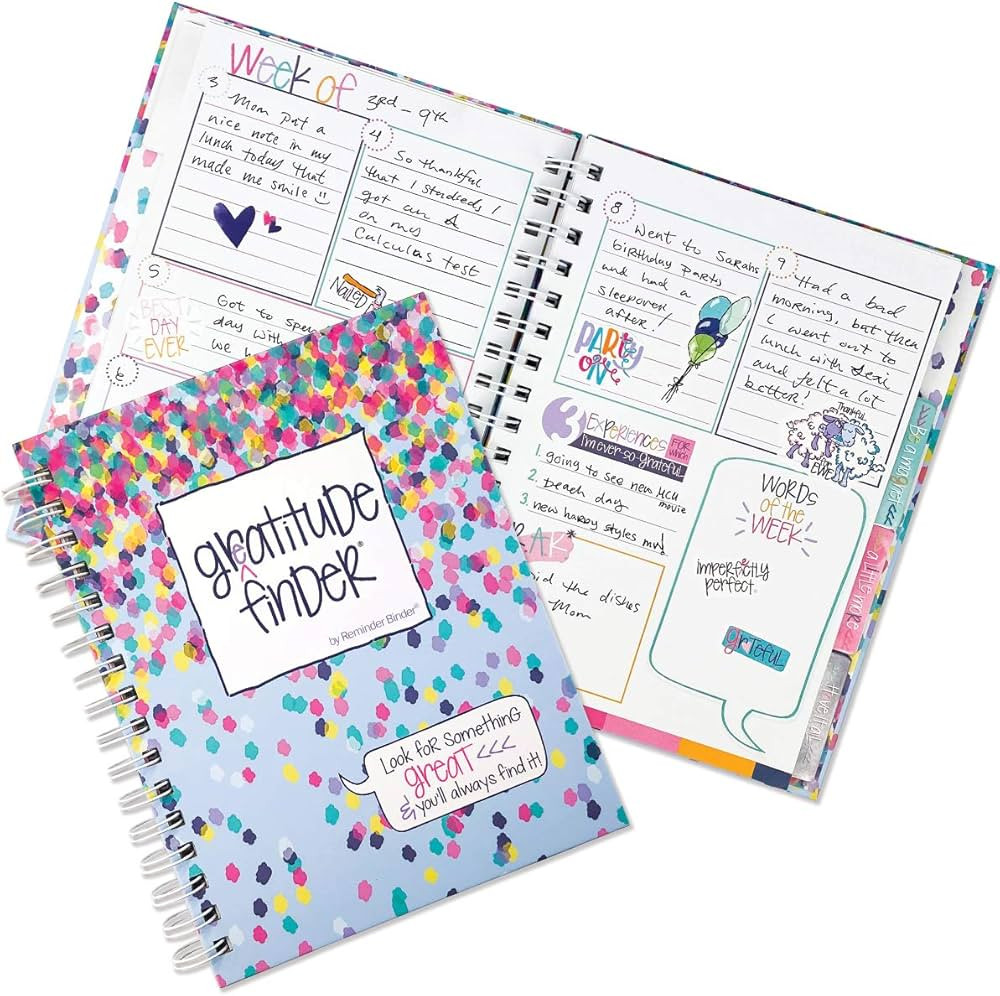 Week of 3rd - 9th
3
Mom put a
nice note in my
lunch today that
made me smile
4
So thankful
that I studieds I
got an A
on my
Calculas test
NAILED
5
BEST
DAY
EVER
Got to spe
day with
we h
6
8
Went to Sarahs
birthday party
and had a
sleepover
after!
PARTY
ON
9
Had a bad
morning, but then
I went out to
lunch with
and felt a lot
better!
Thankful
EWE
3 EXPERIENCES FOR which
I'm ever-so-grateful
1. going to see new MCU
movie
2. beach day
3. new happy styles
AK*
id the dishes
Mom
WORDS
of the
WEEK
imperfectly
perfect
grTEFUL
Be a magnet <<<
a little more
Have it all
greatitude
finder®
by Reminder Binder®
Look for something
great <<<
& you'll always find it!